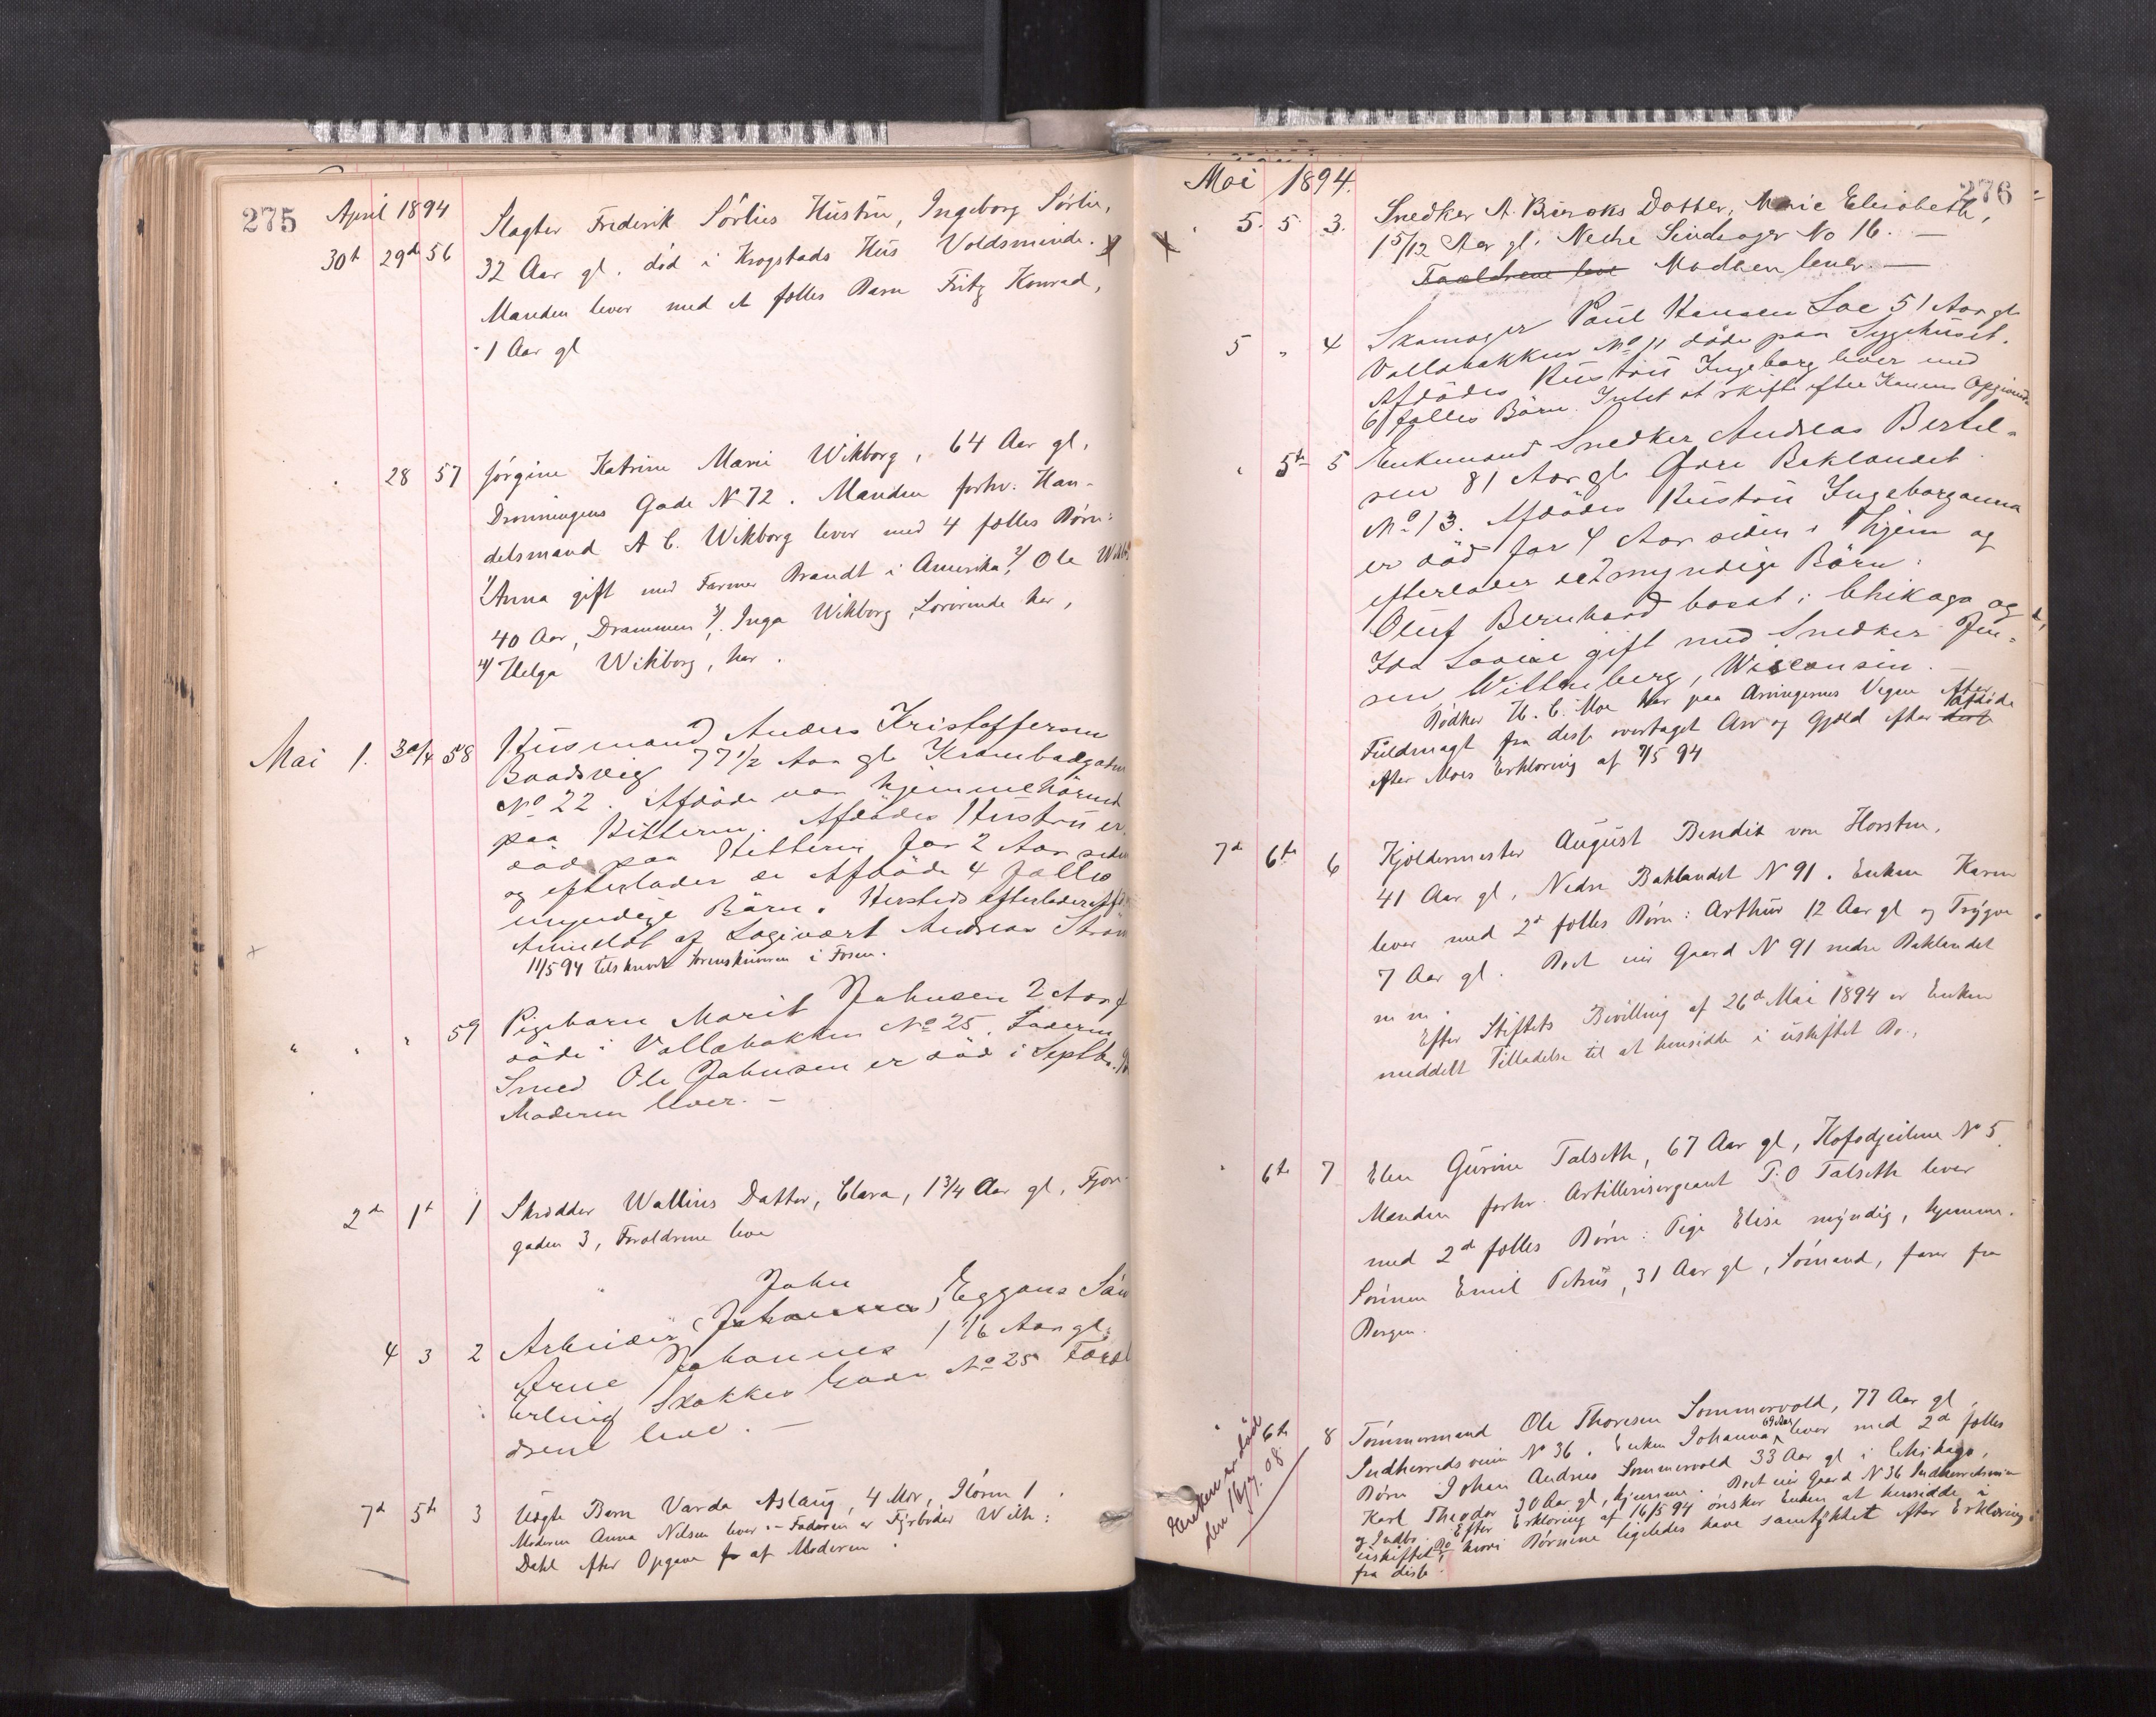 275 April 1894
30t 29de 56 Slagter Frederik Sørlies Hustru, Ingeborg Sørlie,
32 Aar gl. død i Krogstads Hus Voldsminde.
Manden lever med et fælles Barn Fritz Konrad,
1 Aar gl
28 57 Jørgine Katrine Marie Wikborg, 64 Aar gl,
Dronningens Gade N 72. Manden forhv. Han-
delsmand A C. Wikborg lever med 4 fælles Børn:
1/ Anna gift med Farmer Brandt i Amerika 2/ Ole Wikb
40 Aar, Drammen 3/. Inga Wikborg, Lærerinde her,
4/ Helga Wikborg, her.
Mai 1. 30/4 58 Husmand Anders Kristoffersen
Baadsvig 77 1/2 Aar gl Krambodgaden
No 22. Afdøde var hjemmehørende
paa Hitteren. Afdødes Hustru er
død paa Hitteren for 2 Aar siden
og efterlader de Afdøde 4 fælles
myndige Børn. Hersteds efterlader Afd
Anmeldt af Logivært Andreas Strøm
11/5 94 tilskrevet Sorenskriveren i Fosen.
" " " 59 Pigebarn Marit Johnsen 2 Aar gl
døde i Vollabakken No 25. Faderen
Smed Ole Johnsen er død i Septbr.
Moderen lever. -
2d 1t 1 Skrædder Wallins Datter, Clara, 1 3/4 Aar gl, Fjor-
gaden 3, Forældrene leve
John
4 3 2 Arbeider (Johansen) Eggans Søn
Arne Johannes 1 1/6 Aar gl.
Erling Skakkes Gade No 25 Foræl
drene leve. -
7d 5t 3 Uægte Barn Varda Aslaug, 4 Mdr, Iløren 1.
Moderen Anna Nilsen lever. - Faderen er Fyrbøder Wilh:
Dahl efter Opgave af Moderen.
Mai 1894. 276
5. 5 3. Snedker A. Datter, Marie Elisabeth,
1 5/12 Aar gl. Nedre No 16. -
Forældrene leve Moderen lever. -
5 " 4 Skomager Paul Hansen Loe 51 Aar gl
Vollabakken No 11 døde paa Sygehuset.
Afdødes Hustru Ingeborg lever med
6 fælles Børn. Intet at skifte efter Konens Opgivende
" 5te 5 Enkemand Snedker Andreas Bertel-
sen 81 Aar gl Øvre Baklandet
No 13. Afdødes Hustru Ingeborganna
er død for 4 Aar siden i Thjem og
efterlader sig 2 myndige Børn:
Oluf Bernhard bosat i Chikago og
Ida Lovise gift med Snedker Jen-
sen, Wittenberg, Wisconsin. -
Bødker H. C. Moe har paa Arvingernes Vegne efter
Fuldmagt fra disse overtaget Arv og Gjæld efter Afdøde
efter Moes Erklæring af 7/5 94
7d 6te 6 Kjældermester August Bendix von Horsten,
41 Aar gl, Nedre Baklandet N 91. Enken Karen
lever med 2 fælles Børn: Arthur 12 Aar gl og Trygve
7 Aar gl. Boet eier Gaard N 91 nedre Baklandet
m m.
Efter Stiftets Bevilling af 26de Mai 1894 er Enken
meddelt Tilladelse til at hensidde i uskiftet Bo.
" 6te 7 Elen Gurine Talseth, 67 Aar gl, Kofodgeilene N 5.
Manden forhv. Artillerisergeant P. O Talseth lever
med 2de fælles Børn: Pige Elise myndig, hjemme.
Sønnen Emil Petrus, 31 Aar gl, Sømand, farer fra
Bergen.
" 6te 8 Tømmermand Ole Thoresen Sommervold, 77 Aar gl,
Indherredsveien N 36. Enken Johanna 69 Aar lever med 2de fælles
Børn Johan Andreas Sommervold 33 Aar gl i Chikago,
Karl Theodor 30 Aar gl, hjemme. Boet eier Gaard N 36 Indherredsveien
og Indbo. Efter Erklæring af 16/5 94 ønsker Enken at hensidde i
uskiftet Bo, hvori Børnene ligeledes have samtykket efter Erklæring
fra disse.
Enken er død
den 16/7. 08